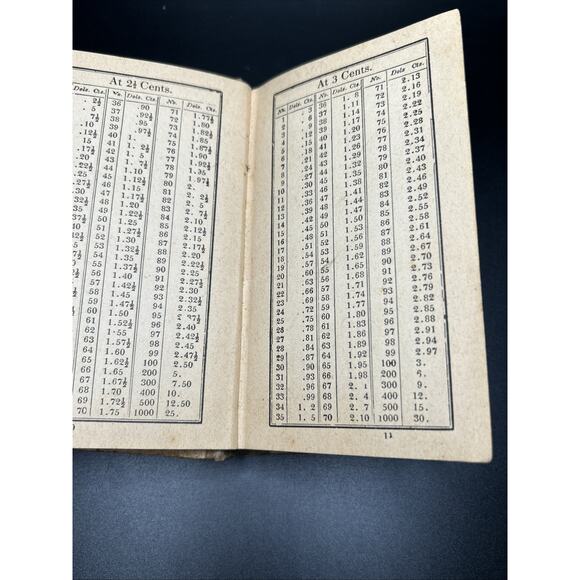 At 2½ Cents.
Dols. Cts. No. Dols. Cts. No. Dols. Cts.
. 2½ 36 .90 71 1.77½
. 5 37 .92½ 72 1.80
7½ 38 .95 73 1.82½
.10 39 .97½ 74 1.85
.12½ 40 1. 75 1.87½
.15 41 1. 2½ 76 1.90
.17½ 42 1. 5 77 1.92½
.20 43 1. 7½ 78 1.95
.22½ 44 1.10 79 1.97½
.25 45 1.12½ 80 2.
.27½ 46 1.15 81 2. 2½
.30 47 1.17½ 82 2. 5
32½ 48 1.20 83 2. 7½
35 49 1.22½ 84 2.10
37½ 50 1.25 85 2.12½
40 51 1.27½ 86 2.15
52 1.30 87 2.17½
53 1.32½ 88 2.20
54 1.35 89 2.22½
55 1.37½ 90 2.25
56 1.40 91 2.27½
57 1.42½ 92 2.30
58 1.45 93 2.32½
59 1.47½ 94 2.35
60 1.50 95 2.37½
61 1.52½ 96 2.40
62 1.55 97 2.42½
63 1.57½ 98 2.45
64 1.60 99 2.47½
65 1.62½ 100 2.50
66 1.65 200 5.
67 1.67½ 300 7.50
68 1.70 400 10.
69 1.72½ 500 12.50
70 1.75 1000 25.
At 3 Cents.
No. Dols. Cts. No. Dols. Cts. No. Dols Cts.
1 . 3 36 1. 8 71 2.13
2 . 6 37 1.11 72 2.16
3 . 9 38 1.14 73 2.19
4 .12 39 1.17 74 2.22
5 .15 40 1.20 75 2.25
6 .18 41 1.23 76 2.28
7 .21 42 1.26 77 2.31
8 .24 43 1.29 78 2.34
9 .27 44 1.32 79 2.37
10 .30 45 1.35 80 2.40
11 .33 46 1.38 81 2.43
12 .36 47 1.41 82 2.46
13 .39 48 1.44 83 2.49
14 .42 49 1.47 84 2.52
15 .45 50 1.50 85 2.55
16 .48 51 1.53 86 2.58
17 .51 52 1.56 87 2.61
18 .54 53 1.59 88 2.64
19 .57 54 1.62 89 2.67
20 .60 55 1.65 90 2.70
21 .63 56 1.68 91 2.73
22 .66 57 1.71 92 2.76
23 .69 58 1.74 93 2.79
24 .72 59 1.77 94 2.82
25 .75 60 1.80 95 2.85
26 .78 61 1.83 96 2.88
27 .81 62 1.86 97 2.91
28 .84 63 1.89 98 2.94
29 .87 64 1.92 99 2.97
30 .90 65 1.95 100 3.
31 .93 66 1.98 200 6.
32 .96 67 2. 1 300 9.
33 .99 68 2. 4 400 12.
34 1. 2 69 2. 7 500 15.
35 1. 5 70 2.10 1000 30.
11